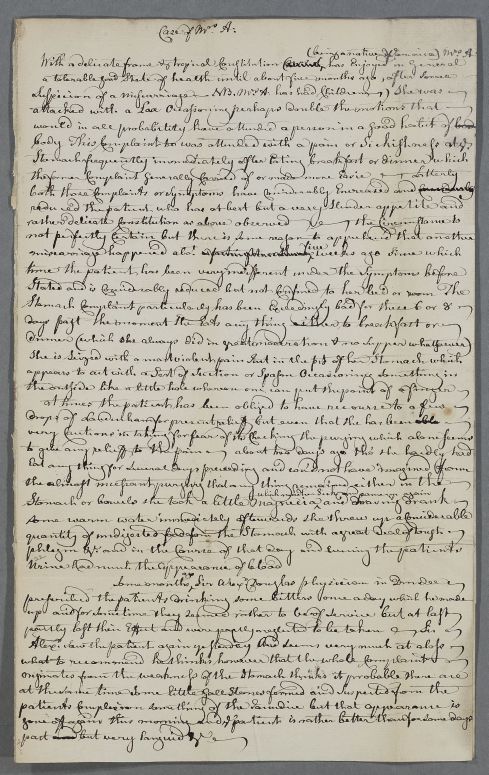 Case of Mrs. A:
(being a native of Jamaica) Mrs. A:
With a delicate frame & tropical Constitution has Enjoyed in General
a tolerable good State of health until about five months ago, after some
Suspicion of a miscarriage — NB. Mrs. A has had Children — She was
attacked with a Lax Occasioning perhaps double the motions that
would in all probability have attended a person in a good habit of
body This Complaint too was attended with a pain or Sickishness at
Stomach frequently immediately after Eating breakfast or dinner which
the former Complaint Generally Carried off or made more Easie — Latterly
both those Complaints or Symptoms have Considerably Encreased and
reduced the patient, who has at best but a very Slender appetite and
rather delicate Constitution as above observed — the Circumstance is
not perfectly Certain but there is Some reason to apprehend that another
miscarriage happened abot. five weeks ago Since which
time the patient has been very indifferent under the Symptoms before
Stated and is Considerably reduced but not Confined to her bed or room The
Stomach Complaint particularly has been Exceedingly bad for these 6 or 8
days past the moment She Eats any thing either to breakfast or
dinner (which she always did in great moderation & no Supper whatever)
She is Seized with a most violent pain Just in the pit of her Stomach which
appears to act with a Sort of Suction or Spasm Occasioning Something in
the outside like a little hole whereon one can put the point of a finger
at times the patient has been obliged to have recourse to a few
drops of Laudanum for present relief but even that she has been
very Cautious in taking for fear of its Checking the purging which alone Seems
to give any relief to the pain — about two days ago tho' she hardly had
Eat any thing for Several days preceeding and could not have imagined from
the almost incessant purging that any thing remained either in the
Stomach or bowels she took a little magnesia and having drank
some warm water immediately afterwards she threw up a Considerable
quantity of indigested food from the Stomach with a great deal of tough
phlegm &c. and in the Course of that day and Evening the patients
Urine had much the appearance of blood
Some months ago Sir Alexr. Douglas physician in Dundee
prescribed the patients drinking some bitters some a day which he made
up and for Sometime they seemed rather to be of Service but at last
partly lost their Effect and were partly neglected to be taken — Sir
Alexr. saw the patient again yesterday and seems very much at a loss
what to recommend he thinks however that the whole Complaint
originates from the weakness of the Stomach thinks it probable there are
at the same time some little Gall Stones formed and suspected from the
patients Complexion something of the Jaundice but that appearance is
gone off again this morning and the patient is rather better than for some days
past but very languid &c